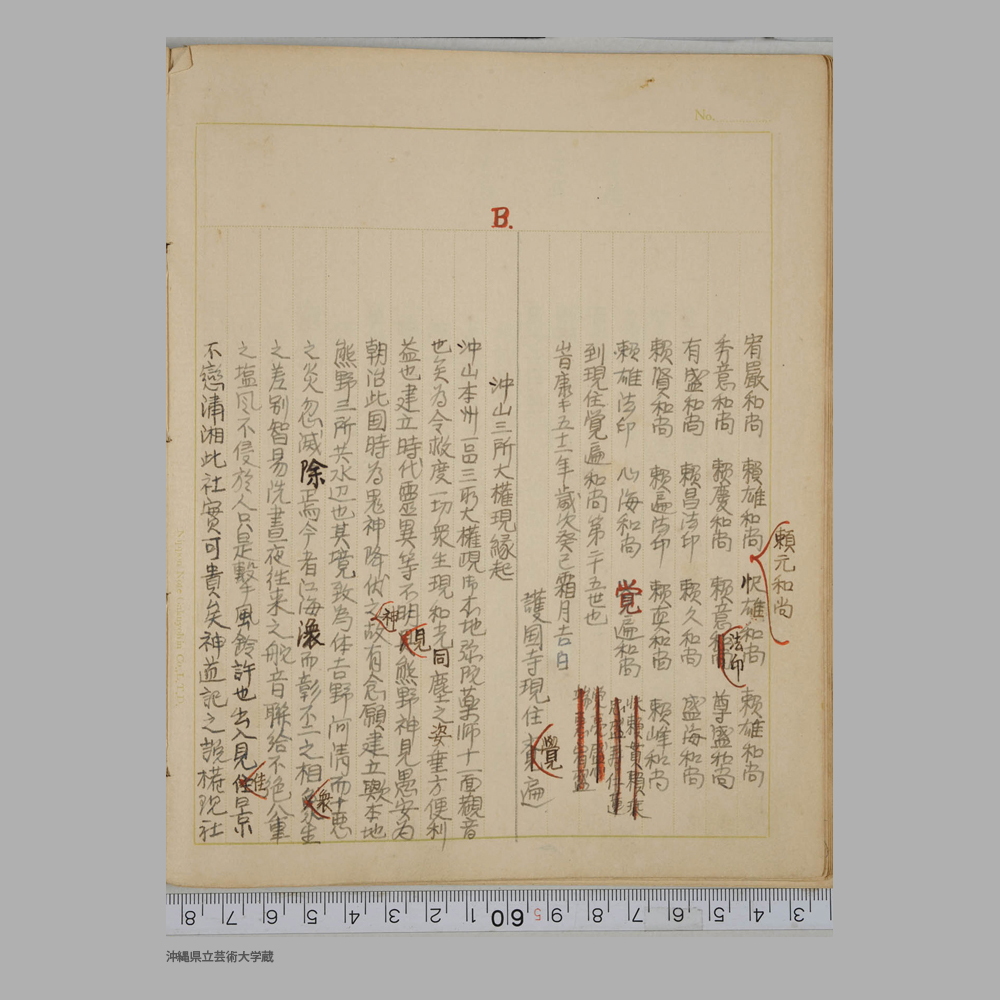 No.
B.
宥嚴和尚 頼雄和尚 快雄和尚 頼雄和尚
頼元和尚
秀意和尚 頼慶和尚 頼意 法印 尊盛和尚
有盛和尚 頼昌法印 頼久和尚 盛海和尚
頼賢和尚 頼遍法印 頼真和尚 頼峰和尚
頼雄法印 心海和尚 覚遍和尚
到現住覚遍和尚第二十五世也
旹康十五十二年歳次癸巳霜月吉日
護国寺現住 覺遍
沖山三所大權現縁起
沖山本州一品三所大權現御本地弥陀藥師十一面觀音
也矣為令救度一切衆生現和光同塵之姿垂方便利
益也建立時代靈異等不明 見熊野神見愚安為
朝治此国時為鬼神降伏之故 神有念願建立歟本地
熊野三所共水辺也其境致為体吉野河清而十惡
之炎忽滅除焉今者江海深而彰不二之相 衆生
之差別智易洗晝夜往来之船音聯給不絶八重
之塩風不侵於人只是擊風鈴許也出入見 佳景
不戀瀟湘此社實可貴矣神道記之説權現社
8 7 6 5 4 3 2 1 60 5 9 8 7 6 5 4 3
沖縄県立芸術大学蔵